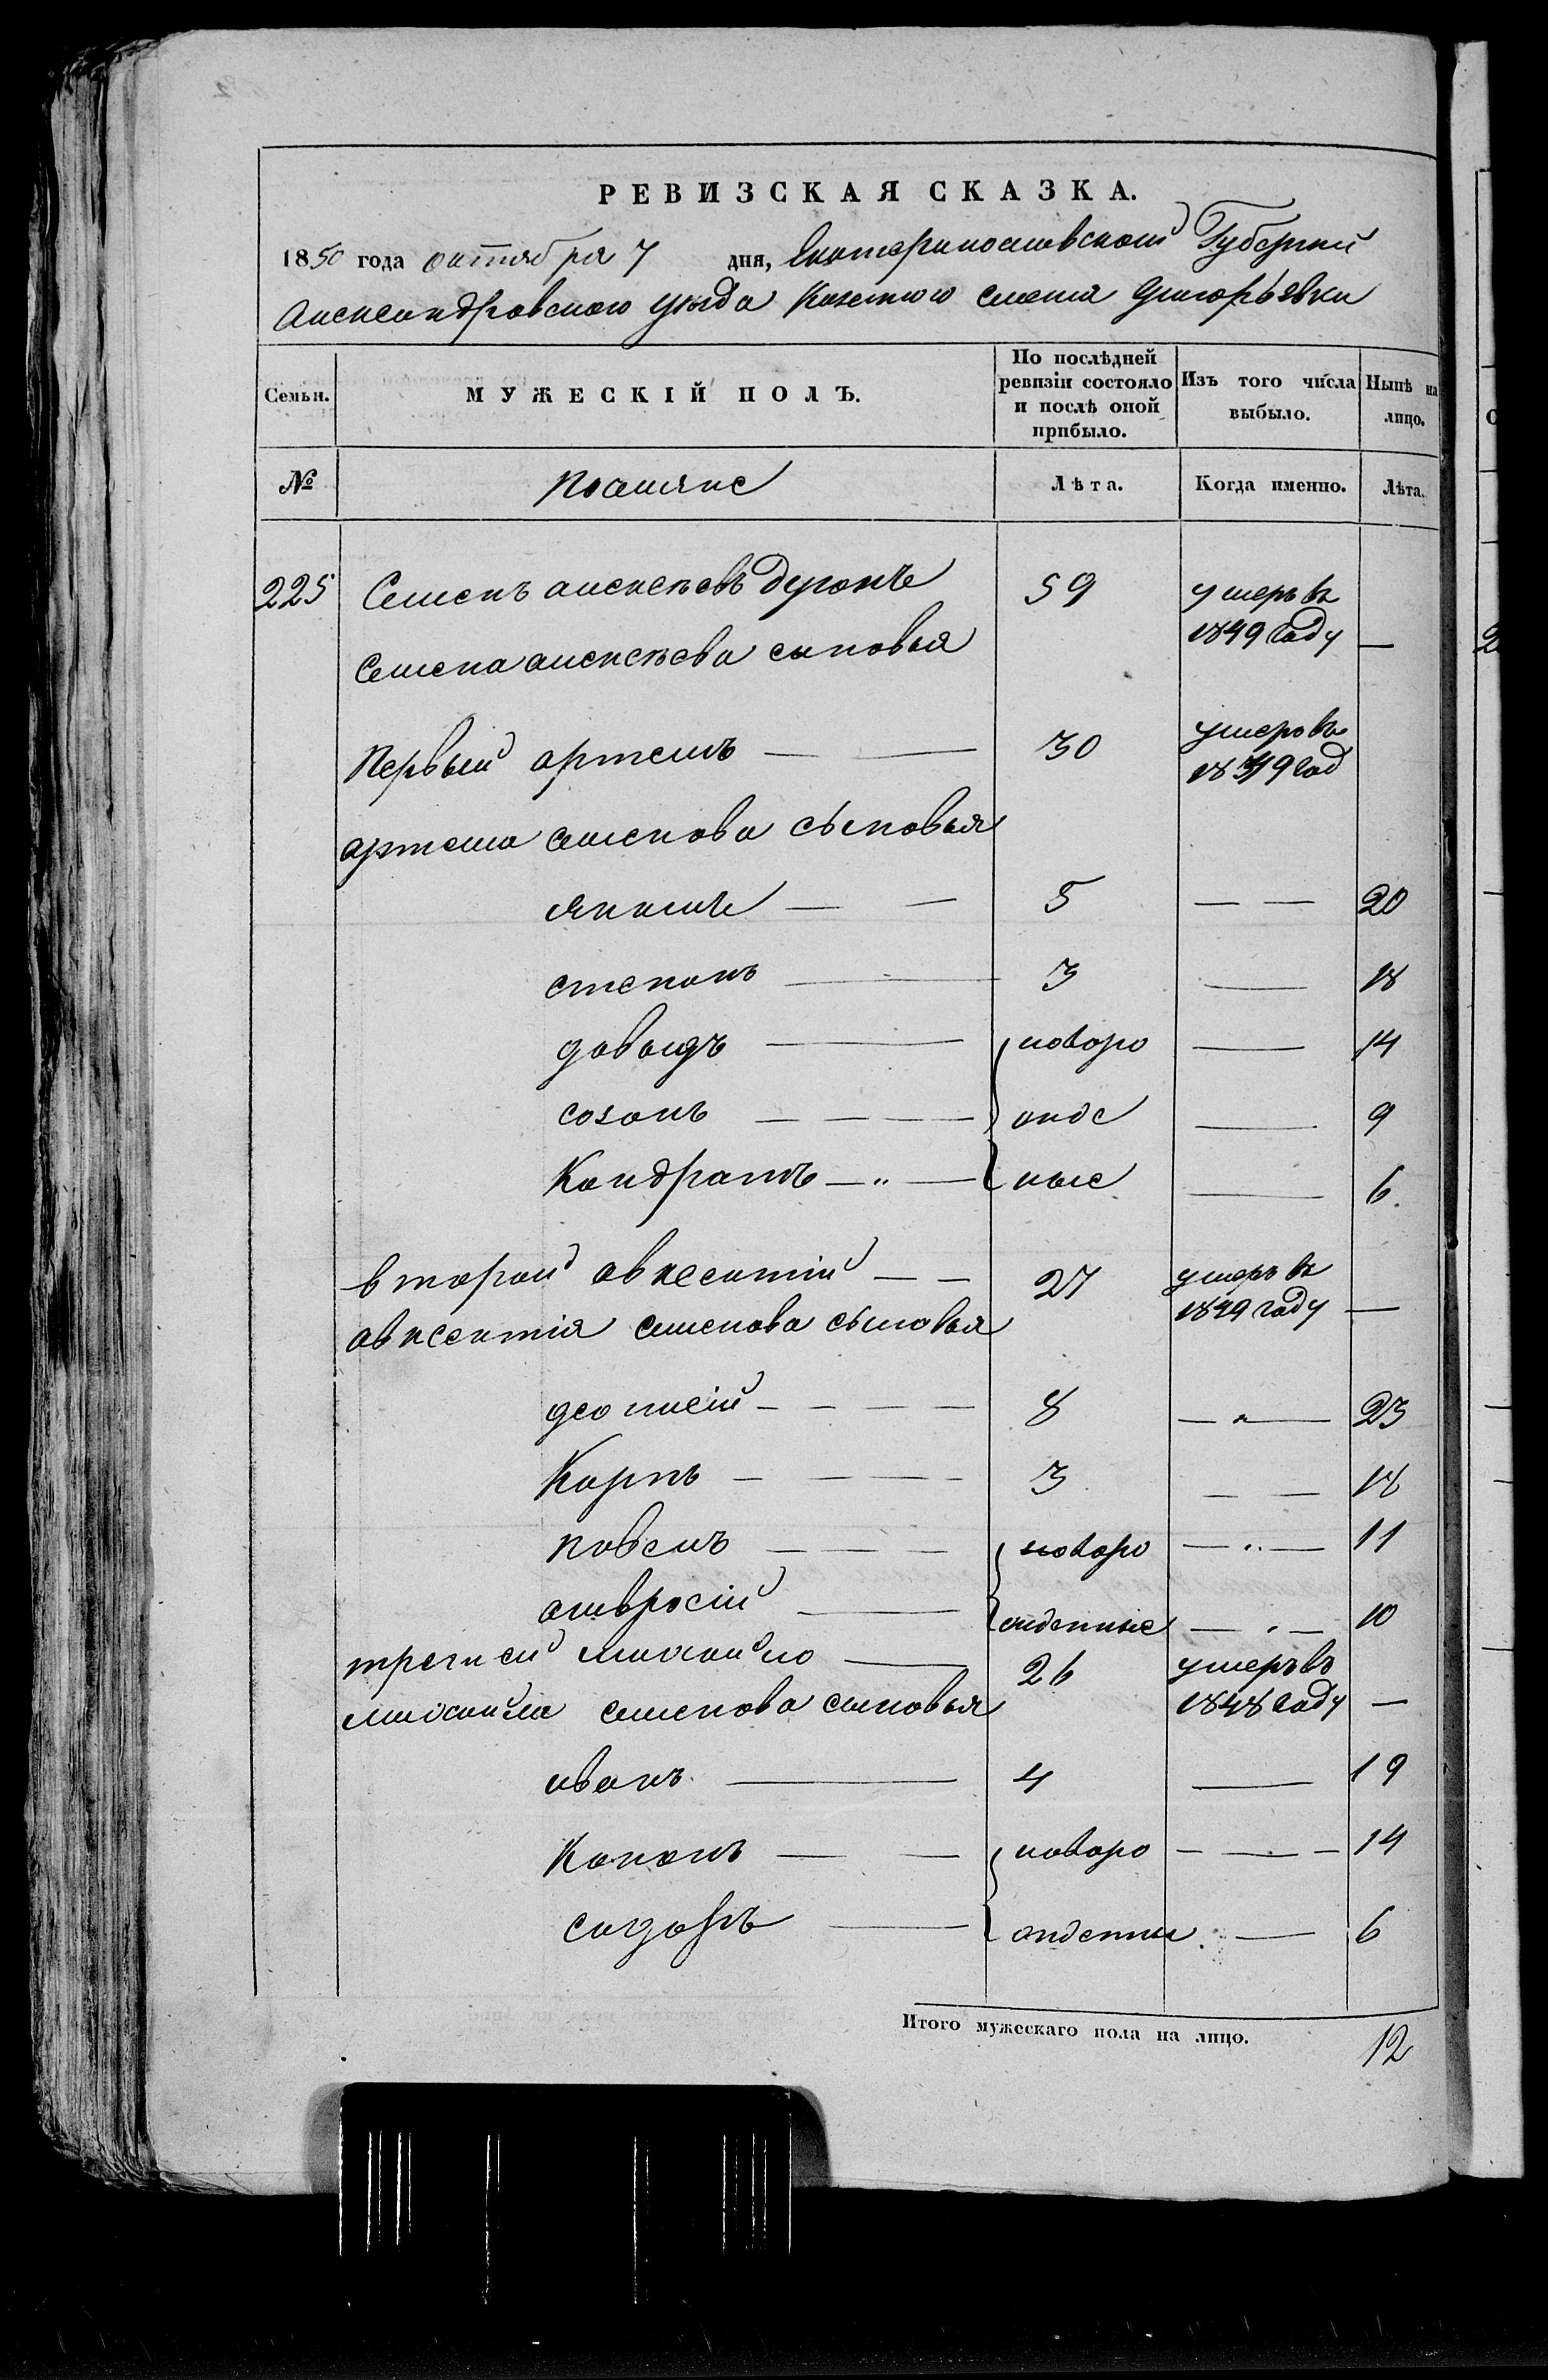 РЕВИЗСКАЯ СКАЗКА.
1850 года октября 7 дня, Екатеринославской Губернии
Александровского уезда Казенного селения Григорьевки
Семьи. МУЖЕСКІЙ ПОЛЪ. По послѣдней ревизіи состояло и послѣ оной прибыло. Изъ того числа выбыло. Нынѣ на лицо.
№ Лѣта. Когда именно. Лѣта.
225 Семенъ алексеевъ 59 умеръ въ 1849 году —
Семена алексеева сыновья
Первый артемъ — — 30 умеръ въ 1849 год
артема семенова сыновья
якимъ — — 5 — — 20
степанъ — 3 — 18
давыдъ — новоро — 14
созонъ — — — — ожде — 9
Кондратъ — „ — ные — 6.
второй авксентій — — 27 умеръ въ 1849 году —
авксентія семенова сыновья
деонисій — — — — 8 — „ — 23
Карпъ — — — — 3 — — 18
павелъ — — — новоро — „ — 11
амвросій — жденные — „ — 10
третей михайло — 26 умеръ въ 1848 году —
михайла семенова сыновья
иванъ — 4 — 19
Кононъ — — новоро — — — 14
сидоръ — жденни — 6
Итого мужескаго пола на лицо. 12